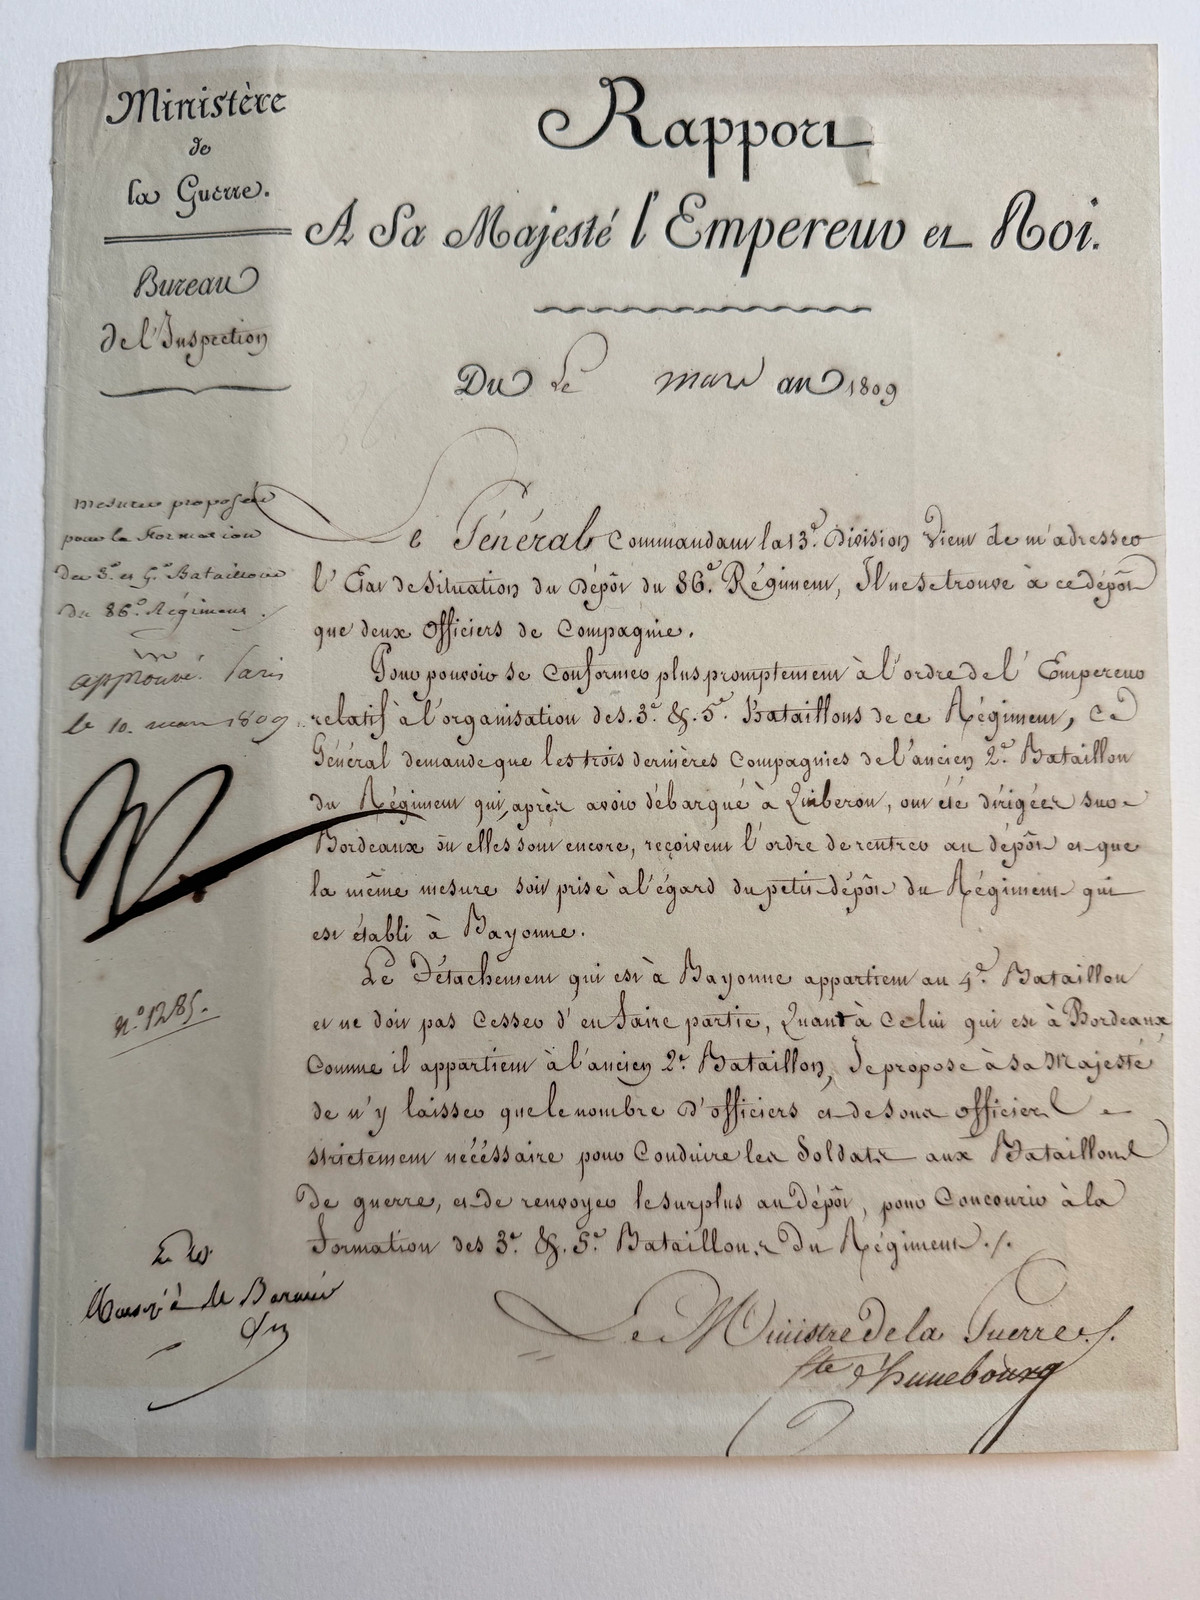 Ministère
de
la Guerre.
Bureau
de l'Inspection
Rapport
A Sa Majesté l'Empereur et Roi.
Du Le mars an 1809
mesures proposées
pour la Formation
des 3e et 5e Bataillons
du 86e Régiment ./
approuvé. Paris
le 10. mars 1809
n.° 1285.
Le Général Commandant la 13e. Division Vient de m'adresser
l'Etat de Situation du Dépôt du 86e. Régiment, Il ne se trouve à ce dépôt
que deux Officiers de Compagnie.
Pour pouvoir se conformer plus promptement à l'ordre de l'Empereur
relatif à l'organisation des 3e. &. 5e. Bataillons de ce Régiment, Ce
Général demande que les trois dernières Compagnies de l'ancien 2e. Bataillon
du Régiment qui, après avoir débarqué à Quiberon, ont été dirigées sur
Bordeaux où elles sont encore, reçoivent l'ordre de rentrer au dépôt et que
la même mesure soit prise à l'égard du petit dépôt du Régiment qui
est établi à Bayonne.
Le Détachement qui est à Bayonne appartient au 4e. Bataillon
et ne doit pas Cesser d'en faire partie, Quant à Celui qui est à Bordeaux,
Comme il appartient à l'ancien 2e. Bataillon, Je propose à Sa Majesté
de n'y laisser que le nombre d'officiers et de sous officiers
strictement nécéssaire pour Conduire les Soldats aux Bataillons
De guerre, et de renvoyer le surplus au Dépôt, pour Concourir à la
formation des 3e. &. 5e. Bataillons Du Régiment ./.
Le Ministre De la Guerre ./.
Cte d'hunebourg